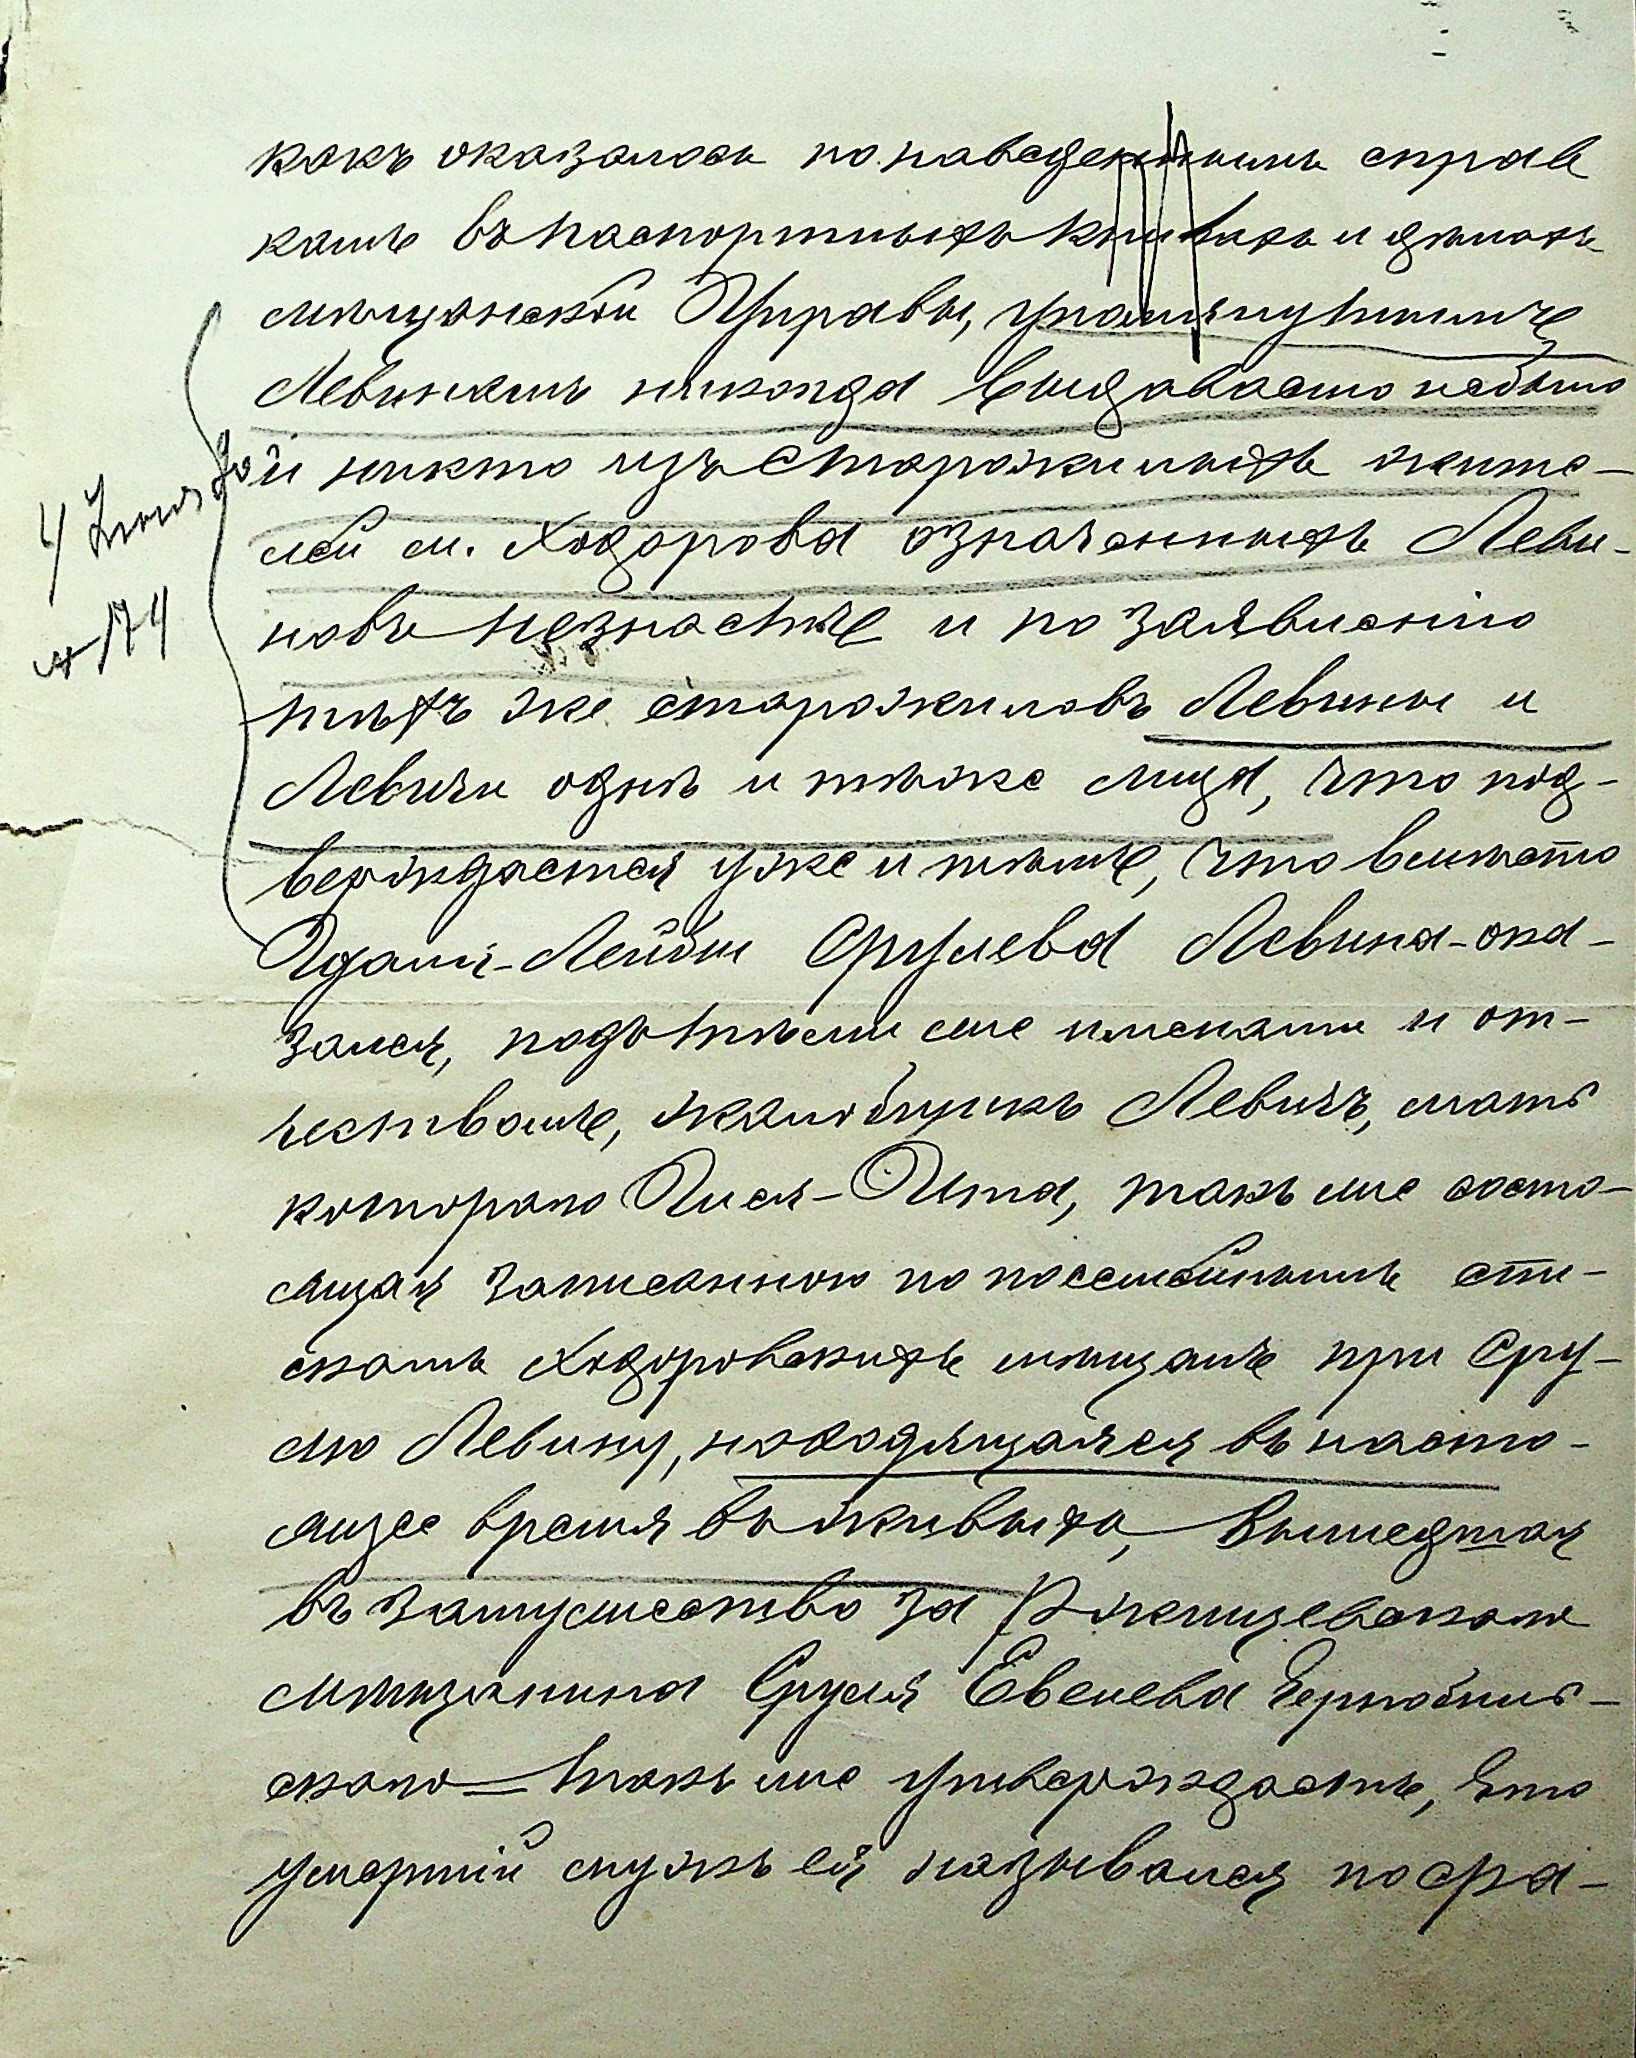 какъ оказалось по наведеннымъ справ
камъ въ паспортныхъ книгахъ и дѣлахъ
мѣщанской Управы, упомянутымъ
Левинымъ никогда выдаваемо небыло
и никто изъ старожилыхъ жите-
лей м. Ходорова означенныхъ Леви-
новъ незнаетъ и по заявленію
4 Іюня
№ 174
тѣхъ же старожиловъ Левины и
Левичи однѣ и тѣже лица, что под-
верждается уже и тѣмъ, что вмѣсто
Лейбы Срулева Левина-ока-
зался, подъ тѣми же именами и от-
чествомъ, жалобщикъ Левичъ, мать
котораго Песя-Ита, такъ же состо-
ящая записанною по посемейнымъ спи-
скамъ Ходоровскихъ мѣщанъ при Сру-
лю Левину, находящаяся въ насто-
ящее время въ живыхъ, вышедшая
въ замужество за Ржищевскаго
мѣщанина Сруля Евелева Чернобыль-
скаго—также утверждаетъ, что
умершій мужъ ея назывался по сра-